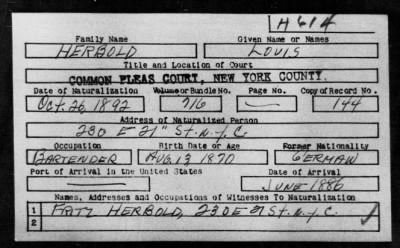 H 614
Family Name Given Name or Names
HERBOLD LOUIS
Title and Location of Court
COMMON PLEAS COURT, NEW YORK COUNTY.
Date of Naturalization Volume or Bundle No. Page No. Copy of Record No.
Oct. 26, 1892 716 — 144
Address of Naturalized Person
230 E 21" St. N.Y.C.
Occupation Birth Date or Age Former Nationality
BARTENDER AUG. 13 1870 GERMAN
Port of Arrival in the United States Date of Arrival
JUNE 1886
Names, Addresses and Occupations of Witnesses To Naturalization
1 FATZ HERBOLD, 230 E 21 St. N.Y.C.
2